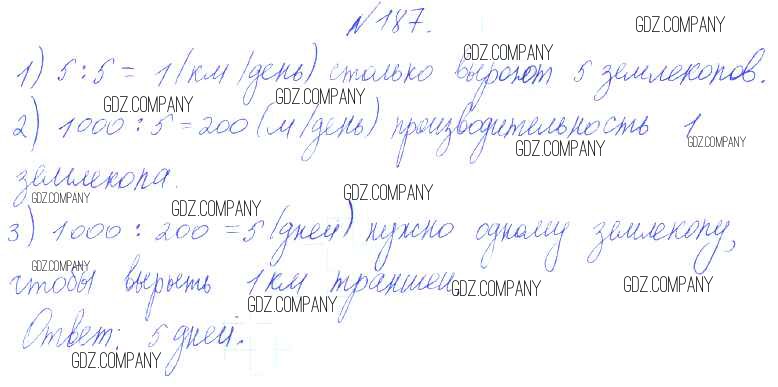 №187.
GDZ.COMPANY
GDZ.COMPANY
1) 5 : 5 = 1 (км/день) столько выроют 5 землекопов.
GDZ.COMPANY GDZ.COMPANY
2) 1000 : 5 = 200 (м/день) производительность 1
GDZ.COMPANY GDZ.COMPANY
землекопа.
GDZ.COMPANY GDZ.COMPANY GDZ.COMPANY
3) 1000 : 200 = 5 (дней) нужно одному землекопу,
GDZ.COMPANY
чтобы вырыть 1 км траншеи.
GDZ.COMPANY GDZ.COMPANY GDZ.COMPANY
Ответ: 5 дней.
GDZ.COMPANY